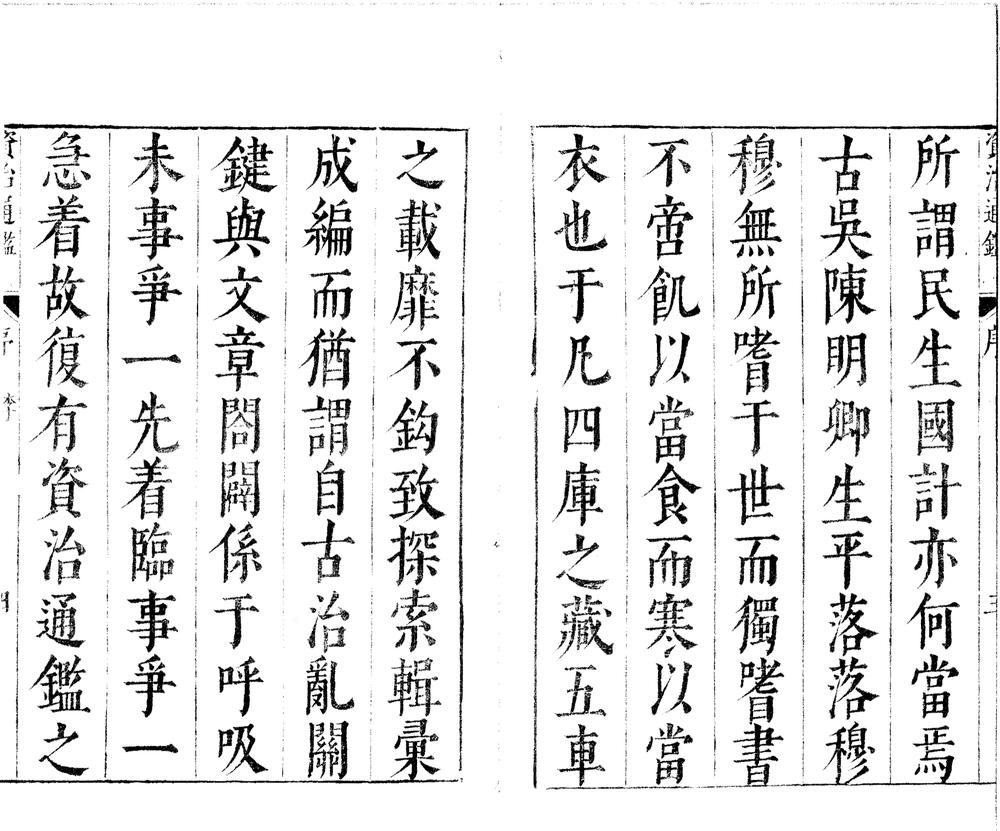 資治通鑑 序 三
所謂民生國計亦何當焉
古吳陳明卿生平落落穆
穆無所嗜于世而獨嗜書
不啻飢以當食而寒以當
衣也于凡四庫之藏五車
之載靡不鈎致探索輯彙
成編而猶謂自古治亂關
鍵與文章闔闢係于呼吸
未事爭一先着臨事爭一
急着故復有資治通鑑之
資治通鑑 序